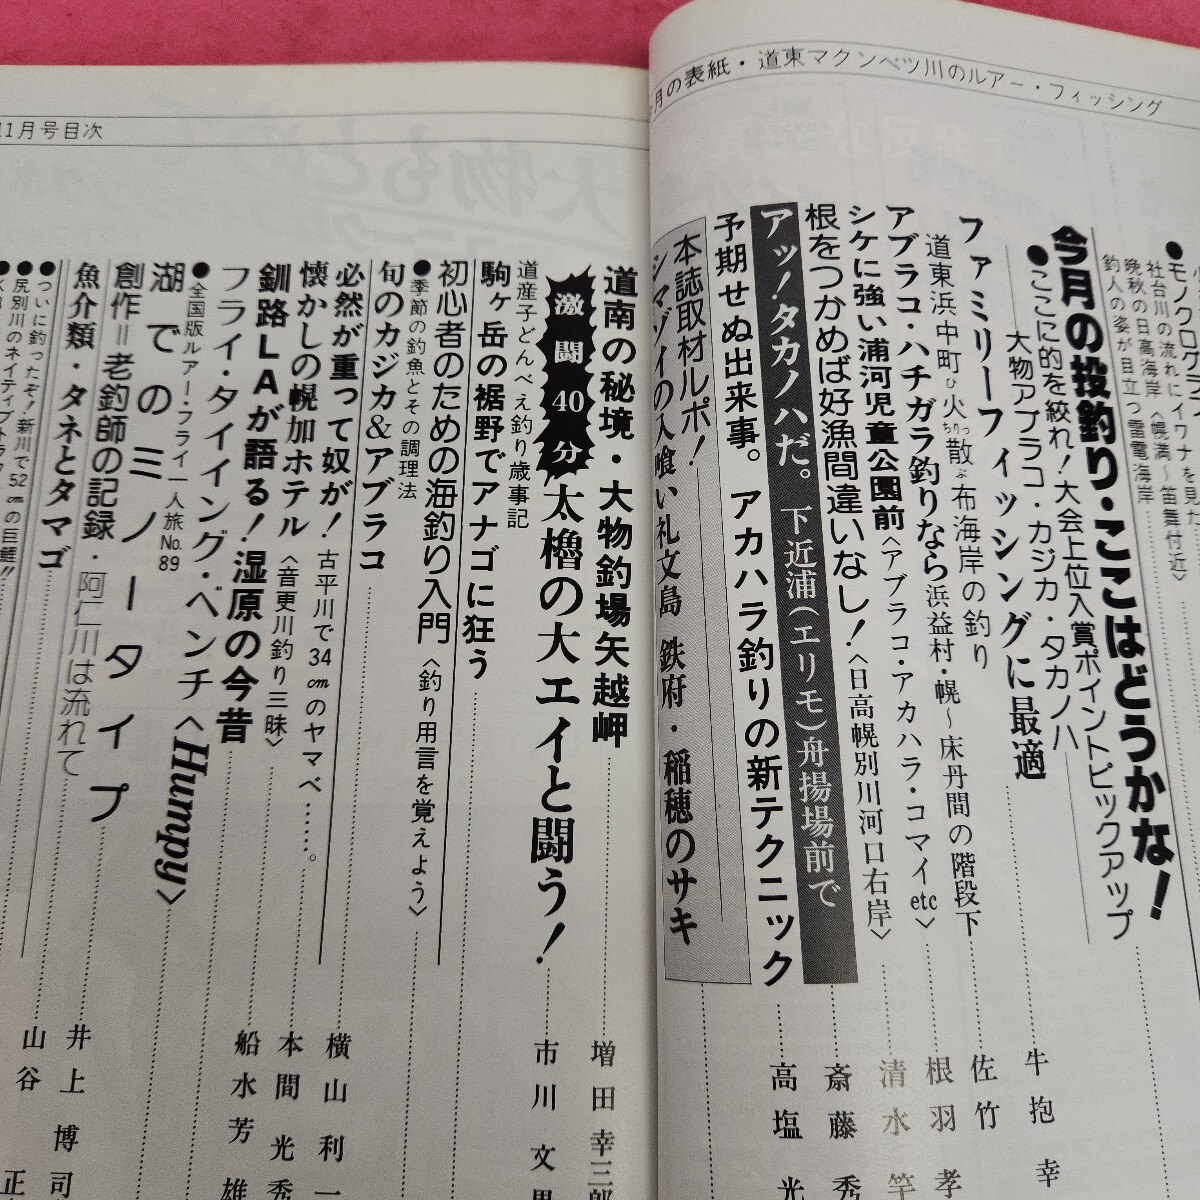 今月の表紙・道東マクンベツ川のルアー・フィッシング
●モノクログラ
社台川の流れにイワナを見た
晩秋の日高海岸〈幌満〜笛舞付近〉
釣人の姿が目立つ雷電海岸
今月の投釣り・ここはどうかな!
●ここに的を絞れ!大会上位入賞ポイントピックアップ
大物アブラコ・カジカ・タカノハ
ファミリーフィッシングに最適
牛抱幸
道東浜中町火散布海岸の釣り
佐竹
アブラコ・ハチガラ釣りなら浜益村・幌〜床丹間の階段下
根羽孝
シケに強い浦河児童公園前〈アブラコ・アカハラ・コマイetc〉
清水竿
根をつかめば好漁間違いなし!〈日高幌別川河口右岸〉
斎藤秀
アッ!タカノハだ。下近浦(エリモ)舟揚場前で
予期せぬ出来事。アカハラ釣りの新テクニック
高塩光
本誌取材ルポ!
シマゾイの入喰い礼文島 鉄府・稲穂のサキ
11月号目次
道南の秘境・大物釣場矢越岬
増田幸三郎
激闘40分 太櫓の大エイと闘う!
市川文男
道産子どんべえ釣り歳事記
駒ヶ岳の裾野でアナゴに狂う
初心者のための海釣り入門〈釣り用言を覚えよう〉
●季節の釣魚とその調理法
旬のカジカ&アブラコ
必然が重って奴が!古平川で34cmのヤマベ……。
横山利一
懐かしの幌加ホテル〈音更川釣り三昧〉
本間光秀
釧路LAが語る!湿原の今昔
船水芳雄
フライ・タイイング・ベンチ〈Humpy〉
●全国版ルアー・フライ一人旅No.89
湖でのミノータイプ
創作=老釣師の記録・阿仁川は流れて
井上博司
魚介類・タネとタマゴ
山谷正
●ついに釣ったぞ!新川で52cmの巨鯉!!
●尻別川のネイティブトラウ